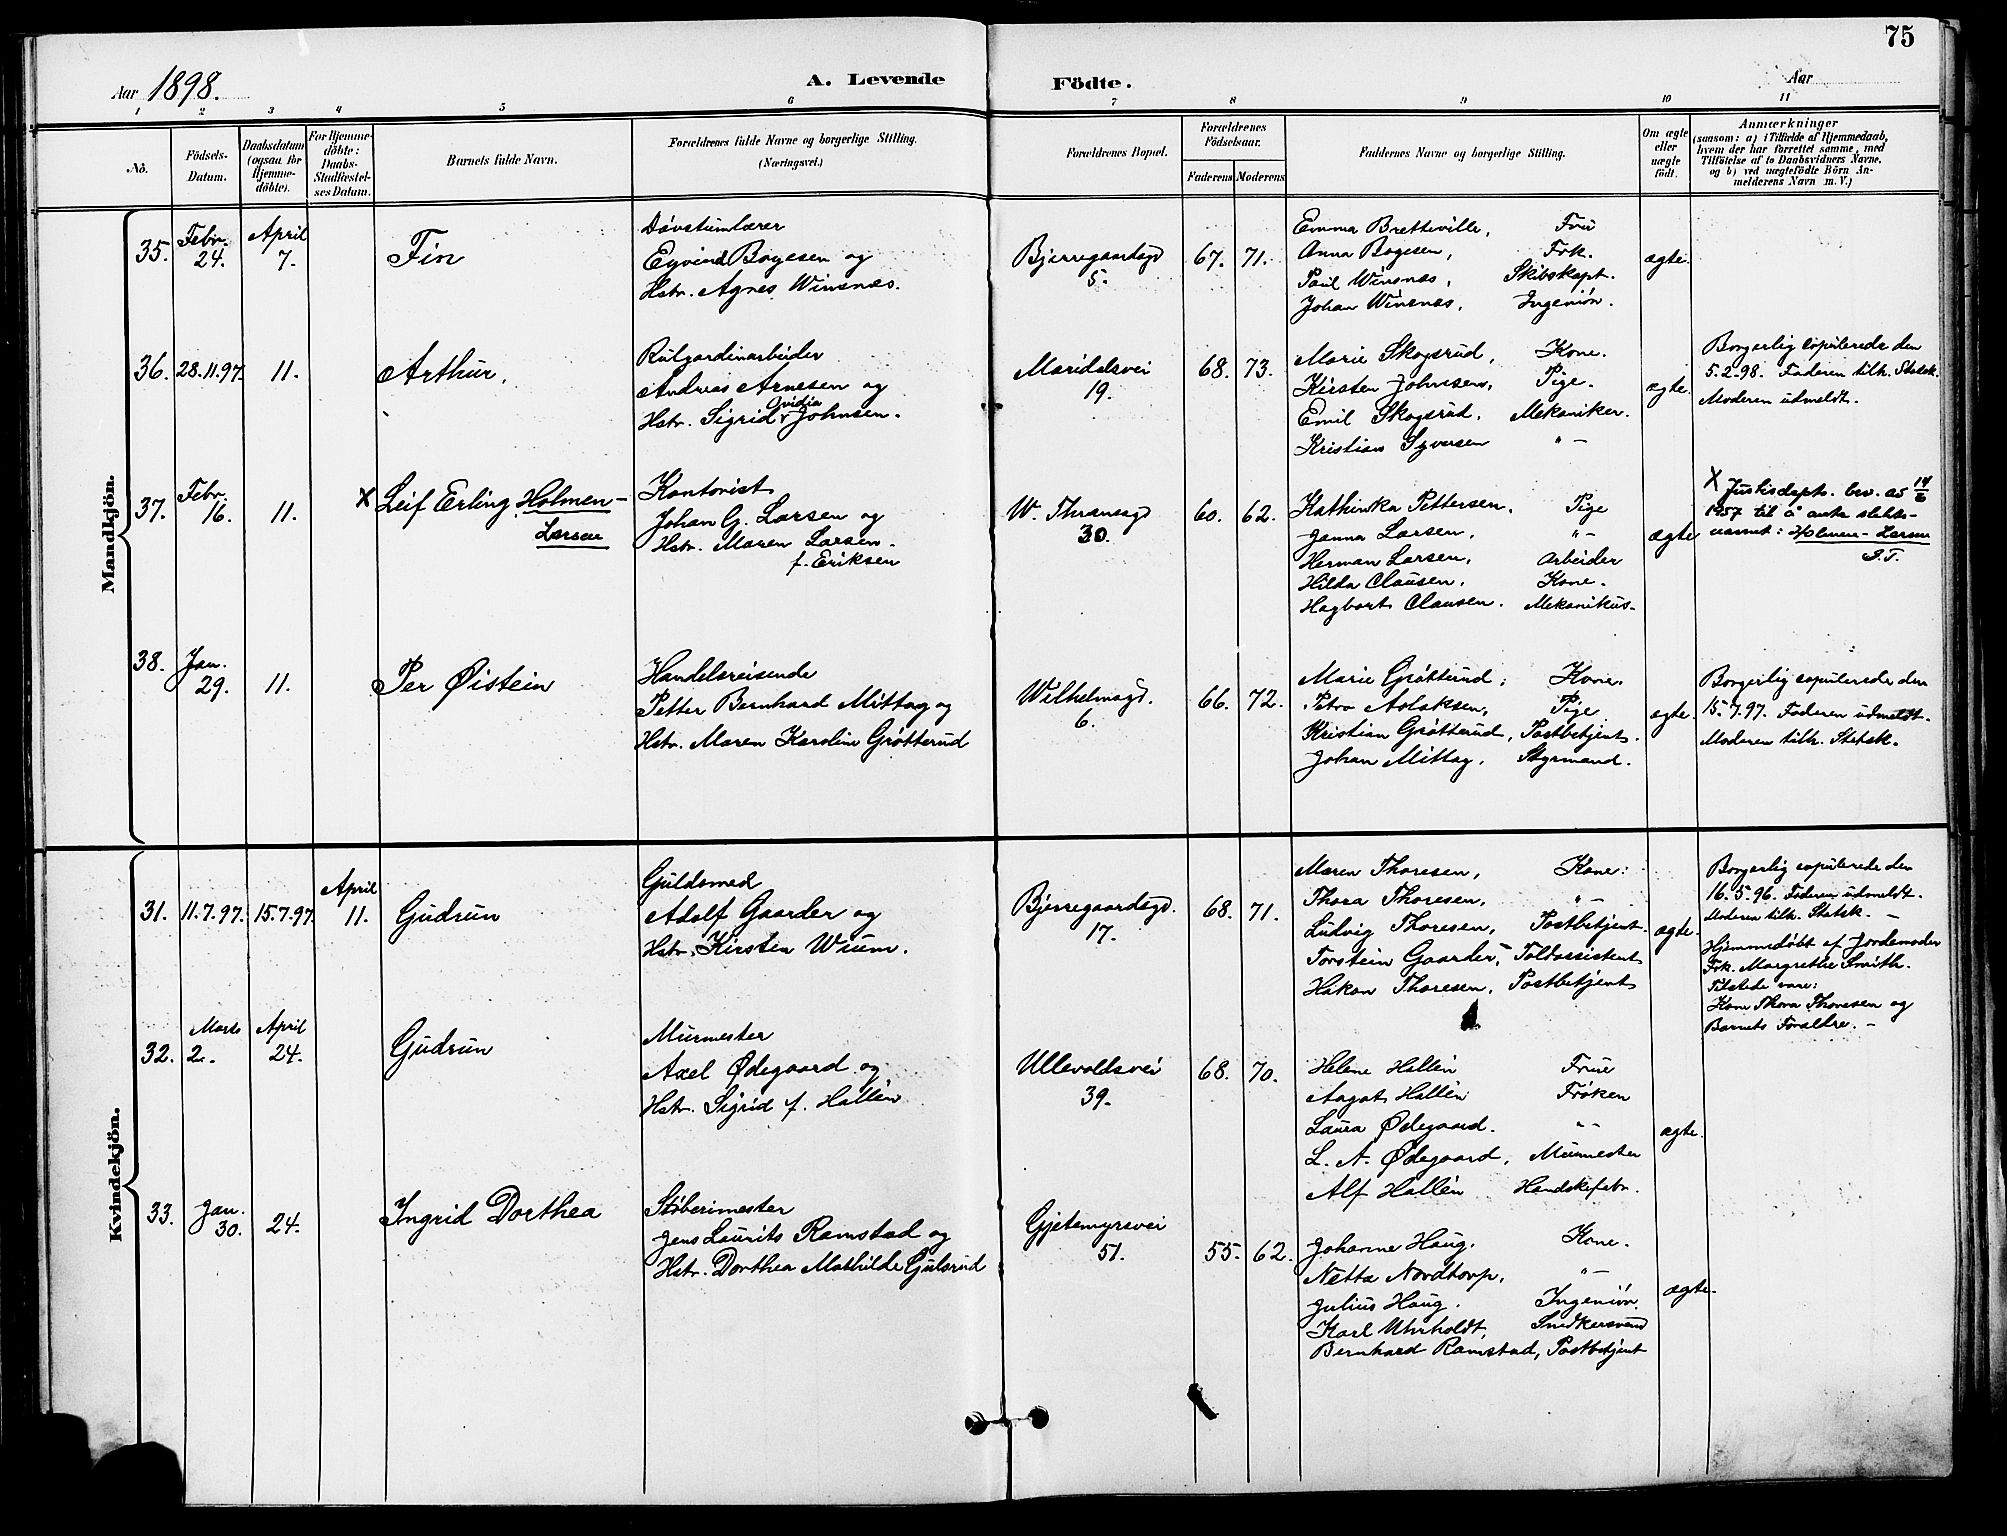 75
Aar 1898.
A. Levende Födte.
Aar
1 2 3 4 5 6 7 8 9 10 11
No.
Födsels-Datum.
Daabsdatum (ogsaa for Hjemme-döbte).
For Hjemme-döbte: Daabs-Stadfæstel-ses Datum.
Barnets fulde Navn.
Forældrenes fulde Navne og borgerlige Stilling.
(Næringsvei.)
Forældrenes Bopæl.
Forældrenes Födselsaar.
Faderens Moderens
Faddernes Navne og borgerlige Stilling.
Om ægte eller uægte födt.
Anmærkninger
(saasom: a) i Tilfælde af Hjemmedaab,
hvem der har forrettet samme, med
Tilföielse af to Daabsvidners Navne,
og b) ved uægtefödte Börn An-
melderens Navn m. V.)
Mandkjön.
35. Febr. 24. April 7.
Fin
Døvstumlærer
Eyvind Boyesen og
Hstr. Agnes Winsnes.
Bjerregaardsgd
5.
67. 71.
Emma Bretteville, Fru
Anna Boyesen, Frk.
Paul Winsnes, Skibskapt.
Johan Winsnes, Ingeniør.
ægte.
36. 28.11.97. 11.
Arthur.
Rulgardinarbeider
Andreas Arnesen og
Hstr. Sigrid Ovidia Johnsen.
Maridalsvei
19.
68. 73.
Marie Skogsrud, Kone.
Kirsten Johnsen, Pige.
Emil Skogsrud, Mekaniker.
Kristian Syversen " -
ægte.
Borgerlig copulerede den
5.2.98. Faderen tilh. Statsk.
Moderen udmeldt.
37. Febr. 16. 11.
X Leif Erling Holmen-
Larsen
Kontorist
Johan G. Larsen og
Hstr. Maren Larsen
f. Eriksen
W. Thranesgd
30.
60. 62.
Kathinka Pettersen, Pige
Janna Larsen, " -
Herman Larsen, Arbeider
Hilda Clausen, Kone.
Hagbart Clausen. Mekanikus.
ægte
X Justisdept. brv. av 14/6
1957 til å anta slekts-
navnet: Holmen-Larsen
38. Jan. 29. 11.
Per Øistein
Handelsreisende
Petter Bernhard Mittag og
Hstr. Maren Karoline Grøtterud
Wilhelmsgd.
6.
66. 72.
Marie Grøtterud, Kone.
Petra Aslaksen, Pige
Kristian Grøtterud, Postbetjent.
Johan Mittag, Styrmand.
ægte.
Borgerlig copulerede den
15.7.97. Faderen udmeldt.
Moderen tilh. Statsk.
Kvindekjön.
31. 11.7.97. 15.7.97. April 11.
Gudrun
Guldsmed
Adolf Gaarder og
Hstr. Kirsten Wium.
Bjerregaardsgd.
17.
68. 71.
Maren Thoresen, Kone.
Thora Thoresen, " -
Ludvig Thoresen, Postbetjent.
Torstein Gaarder, Toldassistent
Hakon Thoresen, Postbetjent
ægte.
Borgerlig copulerede den
16.5.96. Faderen udmeldt.
Moderen tilh. Statsk. -
Hjemmedøbt af Jordemoder
Frk. Margrethe Smith.
Tilstede vare:
Kone Thora Thoresen og
Barnets Forældre. -
32. Marts 2. April 24.
Gudrun
Murmester
Axel Ødegaard og
Hstr. Sigrid f. Hallén
Ullevoldsvei
39.
68. 70.
Helene Hallén Frue
Aagot Hallén Frøken
Laura Ødegaard. " -
L. A. Ødegaard, Murmester
Alf Hallén Handskefabr.
ægte.
33. Jan. 30. 24.
Ingrid Dorthea
Støberimester
Jens Laurits Ramstad og
Hstr. Dorthea Mathilde Gulsrud
Gjetemyrsvei
51.
55. 62.
Johanne Haug, Kone.
Netta Nordtorp, " -
Julius Haug. Ingeniør.
Karl Uhrholdt, Snedkersvend
Bernhard Ramstad, Postbetjent
ægte.